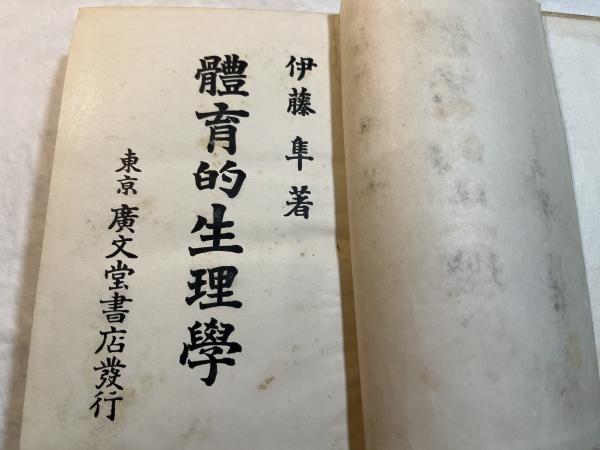 伊藤隼著
體育的生理學
東京廣文堂書店發行